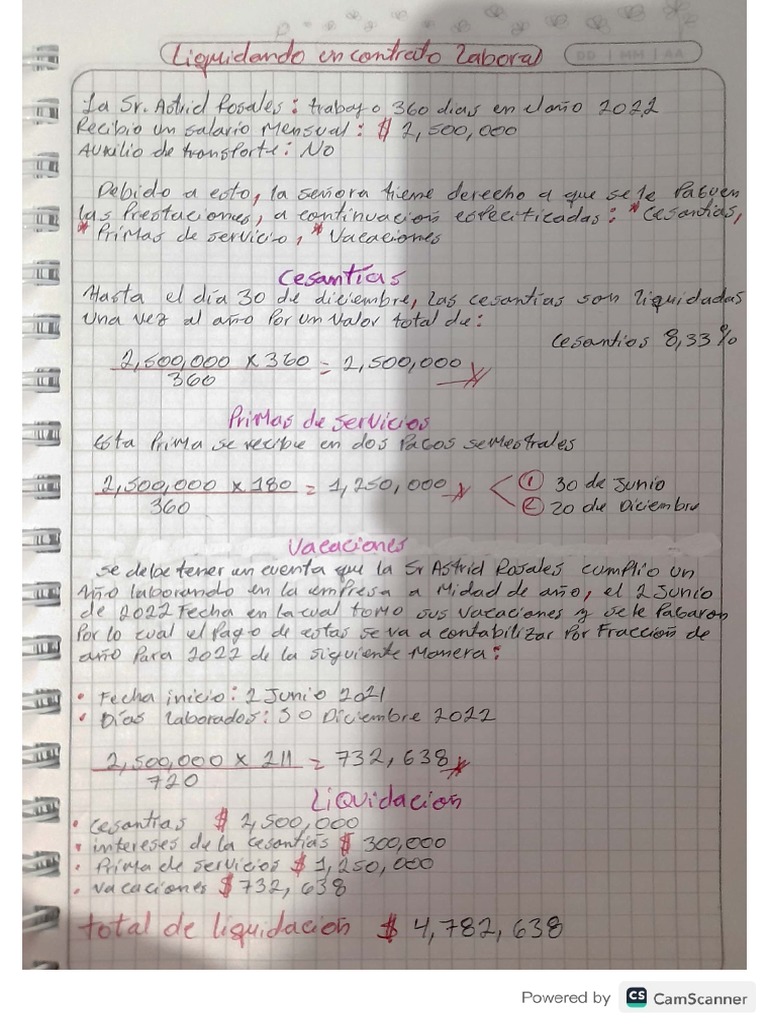 Liquidando en contrato Laboral
DD | MM | AA
La Sr. Astrid Rosales: trabajo 360 dias en el año 2022
Recibio un salario Mensual: $ 2,500,000
Auxilio de transporte: No
Debido a esto, la señora tiene derecho a que se le Paguen
las Prestaciones, a continuación especificadas: * Cesantias,
* Primas de servicio, * Vacaciones
Cesantías
Hasta el día 30 de diciembre, las cesantías son liquidadas
una vez al año Por un valor total de:
Cesantias 8,33%
2,500,000 x 360 = 2,500,000
360
Primas de Servicios
Esta Prima se recibe en dos Pagos semestrales
2,500,000 x 180 = 1,250,000
360
① 30 de Junio
② 20 de Diciembre
Vacaciones
se debe tener en cuenta que la Sr Astrid Rosales cumplio un
Año laborando en la empresa a Midad de año, el 2 Junio
de 2022 Fecha en la cual tomo sus vacaciones y se le Pagaron
Por lo cual el Pago de estas se va a contabilizar Por Fracción de
año Para 2022 de la siguiente Manera:
• Fecha inicio: 2 Junio 2021
• Días laborados: 30 Diciembre 2022
2,500,000 x 211 = 732,638
720
Liquidacion
• cesantias $ 2,500,000
• intereses de la cesantias $ 300,000
• Prima de servicios $ 1,250,000
• vacaciones $ 732,638
total de liquidación $ 4,782,638
Powered by CS CamScanner